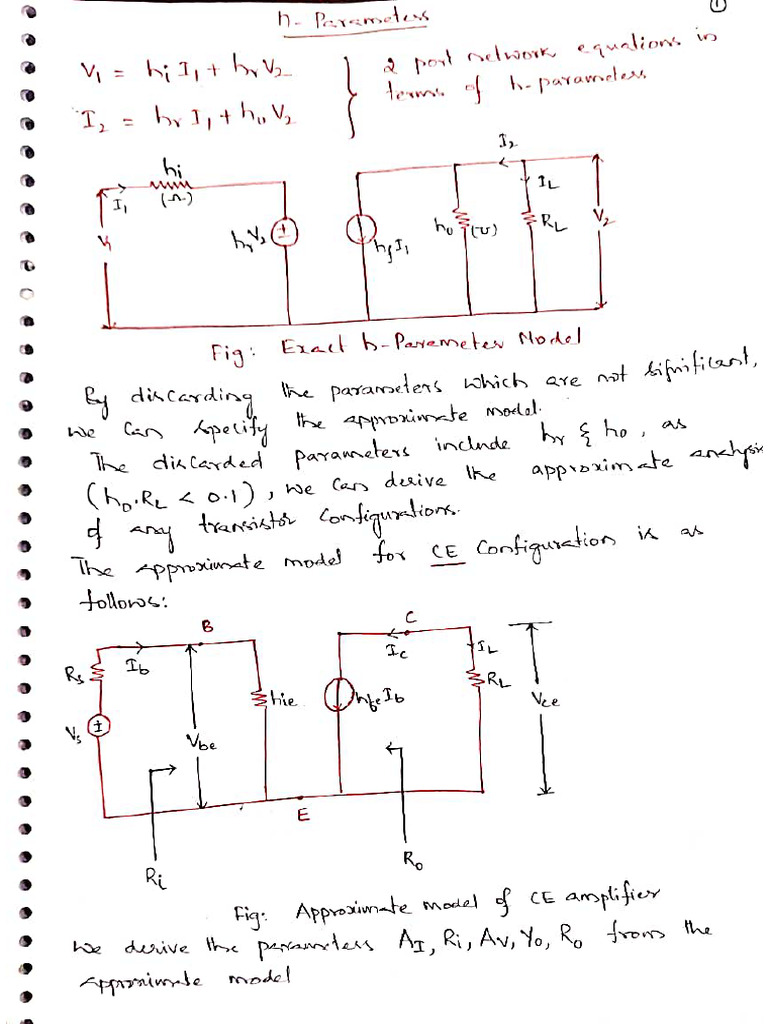 ①
h- Parameters
V₁ = hi I₁ + hr V₂
I₂ = hr I₁ + ho V₂
2 port network equations in
terms of h-parameters
hi
(Ω)
I₁
V₁
hr V₂
hf I₁
ho
(℧)
I₂
IL
RL
V₂
Fig: Exact h-Parameter Model
By discarding the parameters which are not significant,
we can specify the approximate model.
The discarded parameters include hr & ho, as
(ho.RL < 0.1), we can derive the approximate analysis
of any transistor configurations.
The approximate model for CE Configuration is as
follows:
B
C
Rs
Ib
hie
hfe Ib
Ic
IL
RL
Vs
Vbe
Vce
E
Ri
Ro
Fig: Approximate model of CE amplifier
We derive the parameters AI, Ri, Av, Yo, Ro from the
approximate model